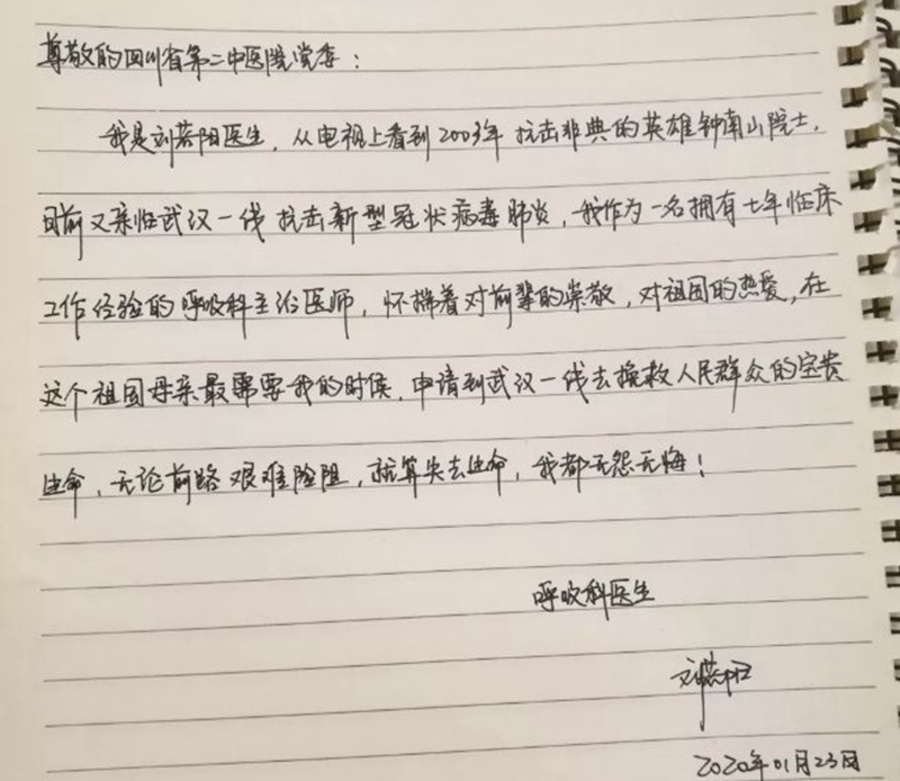 尊敬的四川省第二中医院党委：
我是刘若阳医生，从电视上看到2003年抗击非典的英雄钟南山院士，
日前又亲临武汉一线抗击新型冠状病毒肺炎，我作为一名拥有七年临床
工作经验的呼吸科主治医师，怀揣着对前辈的崇敬，对祖国的热爱，在
这个祖国母亲最需要我的时候，申请到武汉一线去挽救人民群众的宝贵
生命，无论前路艰难险阻，就算失去生命，我都无怨无悔！
呼吸科医生
刘若阳
2020年01月23日